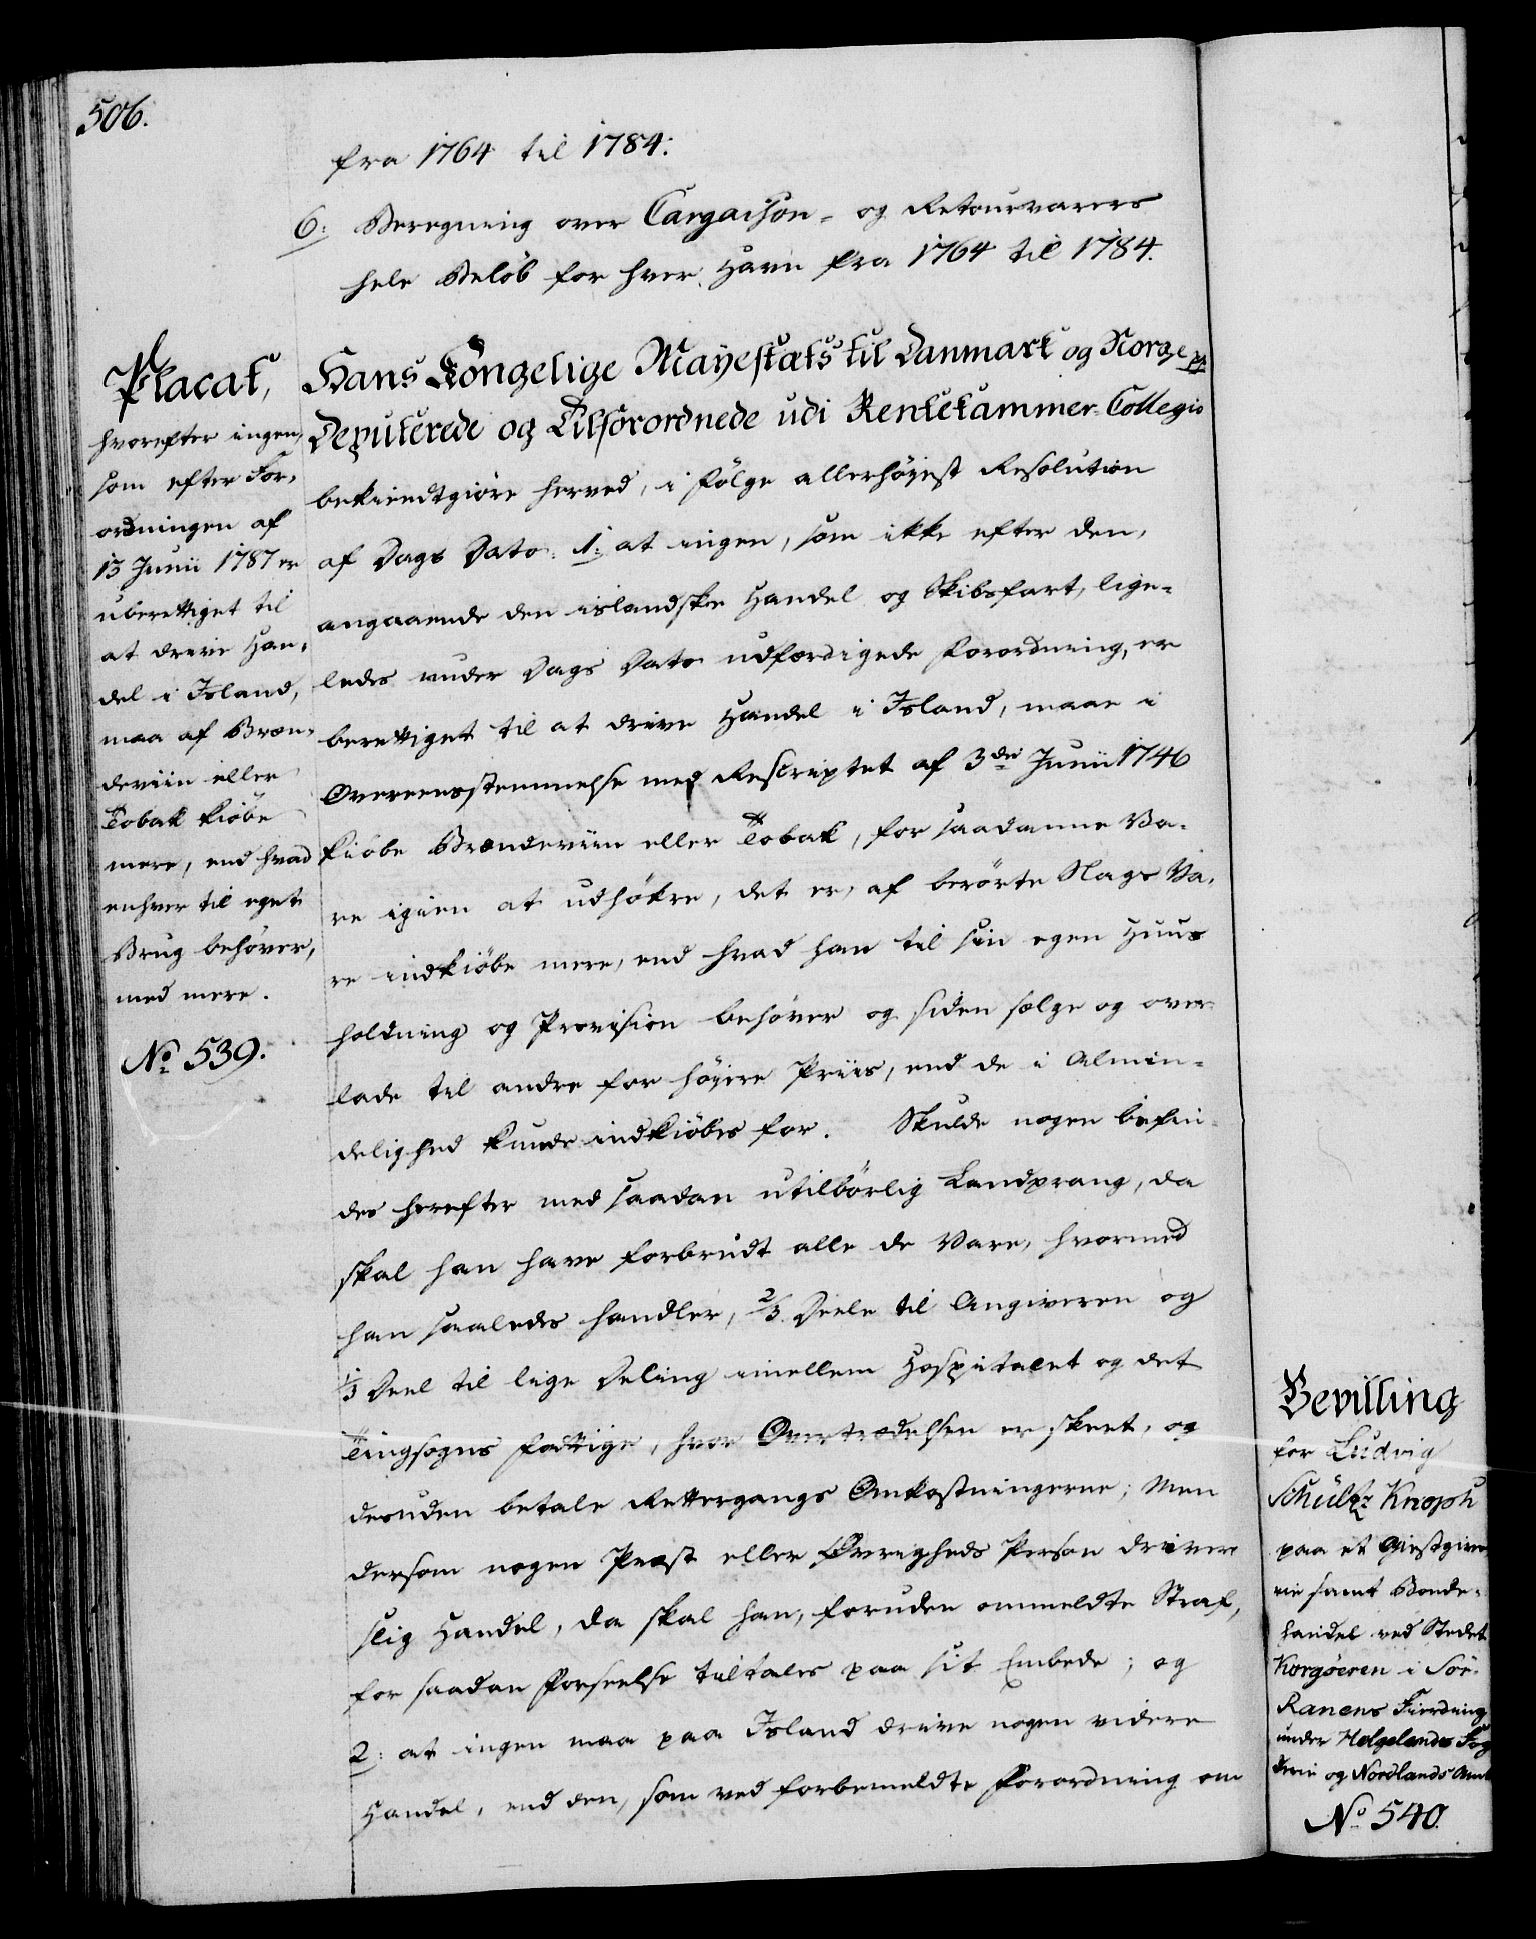 506.
fra 1764 til 1784.
6. Beregning over Cargaison- og Retourvarers
hele Beløb for hver Havn fra 1764 til 1784.
Placat,
hvorefter ingen,
som efter For-
ordningen af
13 Junii 1787 er
uberettiget til
at drive Han-
del i Island,
maa af Bræn-
deviin eller
Tobak kiöbe
mere, end hvad
enhver til eget
Brug behöver,
med mere.
No 539.
Hans Kongelige Mayestæts til Danmark og Norge pp
Deputerede og Tilforordnede udi Rentekammer-Collegio
bekiendtgiöre herved, i fölge allerhöyest Resolution
af Dags Dato: 1: at ingen, som ikke efter den,
angaaende den islandske Handel og Skibsfart, lige-
ledes under Dags Dato udfærdigede Forordning, er
berettiget til at drive Handel i Island, maae i
Overeensstemmelse med Rescriptet af 3die Junii 1746
kiöbe Brændeviin eller Tobak, for saadanne Va-
re igien at udhökre, det er, af berörte Slags Va-
re indkiöbe mere, end hvad han til sin egen Huus
holdning og Provision behöver og siden sælge og over
lade til andre for höyere Priis, end de i Almin-
delighed kunde indkiöbes for. Skulde nogen befin
des herefter med saadan utilbörlig Landprang, da
skal han have forbrudt alle de Vare, hvormed
han saaledes handler, 2/3 Deele til Angiveren og
1/3 Deel til lige Deling imellem Hospitalet og det
Tingsogns fattige, hvor Overtrædelsen er skeet, og
desuden betale Rettergangs Omkostningerne; Men
dersom nogen Præst eller Øvrigheds Person driver
slig Handel, da skal han, foruden ommeldte Straf,
for saadan Forseelse tiltales paa sit Embede; og
2: at ingen maa paa Island drive nogen videre
Handel, end den, som ved forbemeldte Forordning om
Bevilling
for Ludvig
Schultz Knoph
paa et Giestgive
rie samt Bonde-
handel ved Stedet
Korgöeren i Sör-
Ranens Fierding
under Helgelands Fog
derie og Nordlands Amt
No 540.